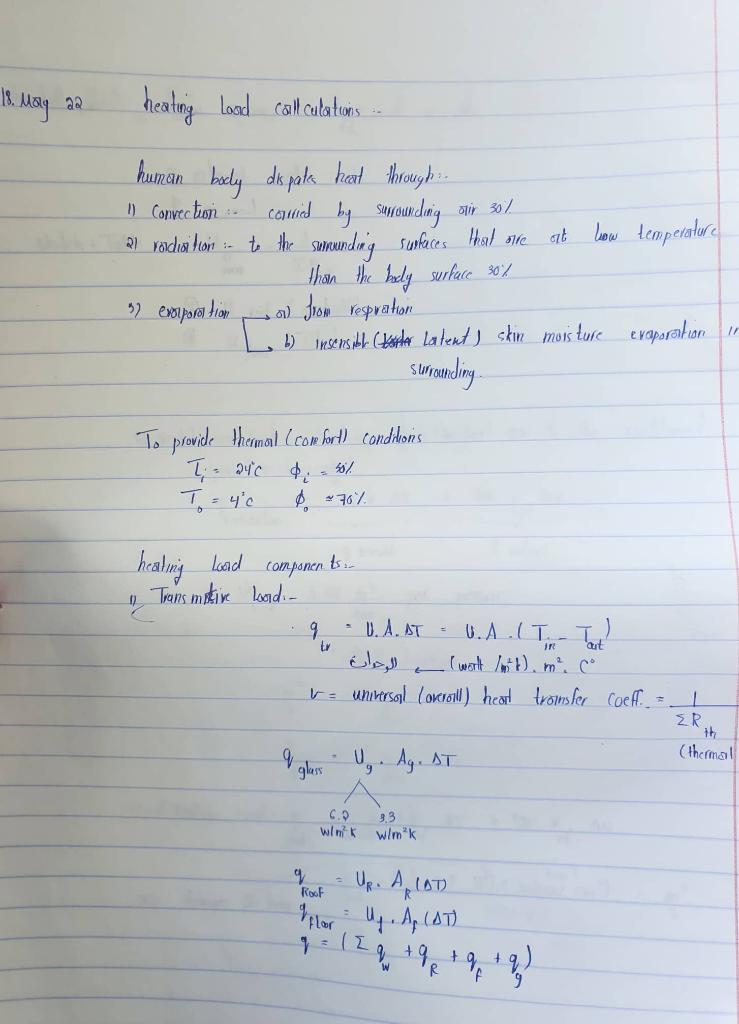 18. May 22 heating Load callculations :-
human body dispates heat through :-
1) Convection :- carried by surrounding air 30%
2) radiation :- to the surrounding surfaces that are at low temperature
than the body surface 30%
3) evaporation a) from respration
b) insensible ( Latent ) skin moisture evaporation in
surrounding.
To provide thermal (comfort) conditions
Ti = 24°C ϕi = 50%
To = 4°C ϕo ≈ 70%
heating Load components :-
1) Transmitive Load :-
qtr = U.A.ΔT = U.A.(Tin - Tout)
الوحدات ← (watt/m²k). m². C°
U = universal (overall) heat transfer coeff. = 1/ΣRth
(thermal
qglass = Ug. Ag. ΔT
6.2 3.3
W/m²K W/m²K
qRoof = UR. AR (ΔT)
qfloor = Uf. Af (ΔT)
q = (Σ qw + qR + qf + qg)